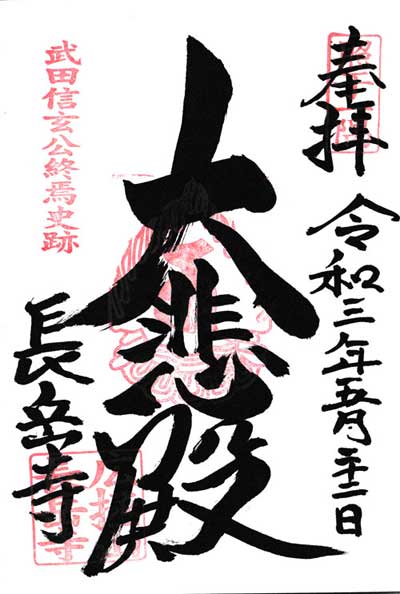 奉拝
令和三年五月二十二日
大悲殿
武田信玄公終焉史跡
長岳寺